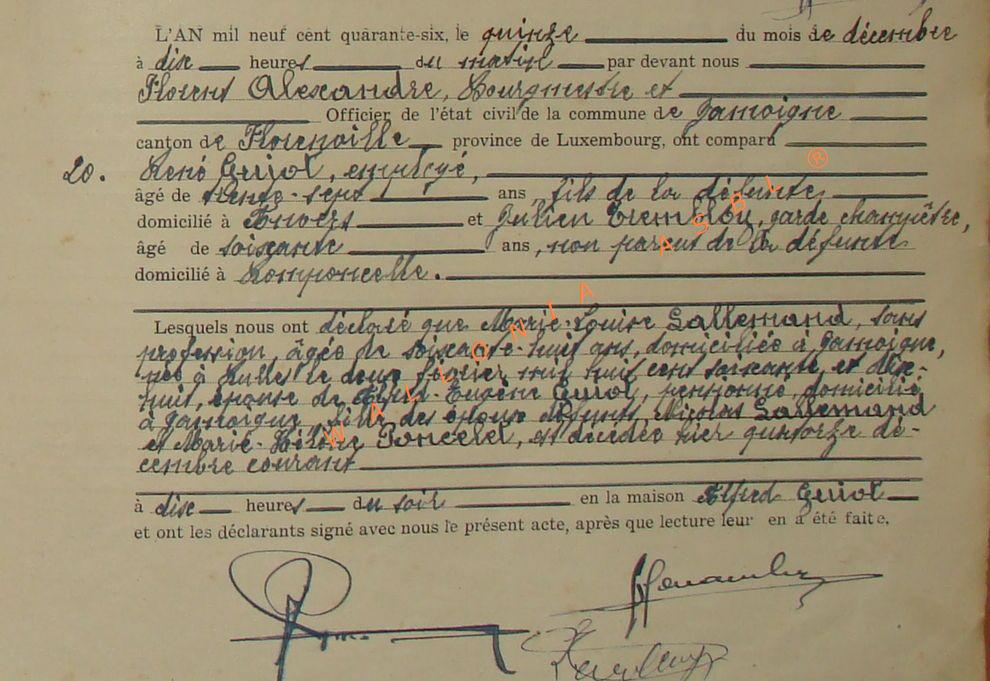 L'AN mil neuf cent quarante-six, le quinze du mois de décembre
à dix heures du matin par devant nous
Florent Alexandre, Bourgmestre et
Officier de l'état civil de la commune de Jamoigne
canton de Florenville province de Luxembourg, ont comparu
20. René Guiot, employé,
âgé de trente-sept ans fils de la défunte,
domicilié à Anvers et Julien Tremblou, garde champêtre,
âgé de soixante ans, non parent de la défunte
domicilié à Romponcelle.
Lesquels nous ont déclaré que Marie-Louise Lallemand, sans
profession, âgée de soixante-huit ans, domiciliée à Jamoigne,
née à Rulles le deux février mil huit cent soixante et dix-
huit, épouse de Eugène Guiot, pensionné, domicilié
à Jamoigne, fille des époux défunts Nicolas Lallemand
et Marie-Hélène Poncelet, est décédée hier quatorze dé-
cembre courant
à dix heures du soir en la maison Alfred Guiot
et ont les déclarants signé avec nous le présent acte, après que lecture leur en a été faite.
WALLONIA ASBL ®